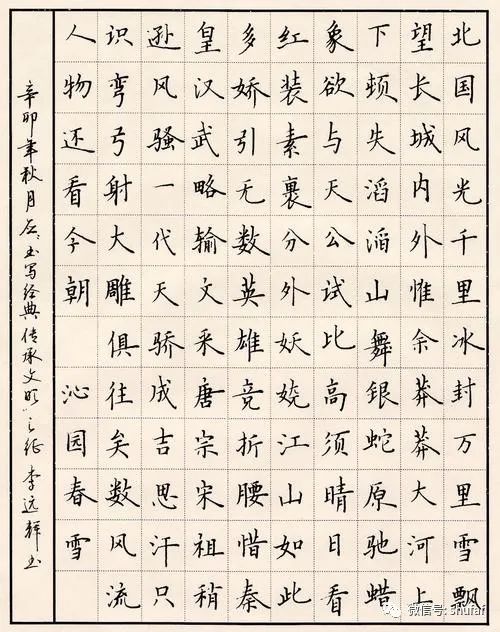 北国风光千里冰封万里雪飘
望长城内外惟余莽莽大河上
下顿失滔滔山舞銀蛇原驰蜡
象欲与天公试比高须晴日看
红装素裹分外妖娆江山如此
多娇引无数英雄竞折腰惜秦
皇汉武略输文采唐宗宋祖稍
逊风骚一代天骄成吉思汗只
识弯弓射大雕俱往矣数风流
人物还看今朝 沁园春雪
辛卯年秋月应"书写经典传承文明"之征李远辉书
微信号: